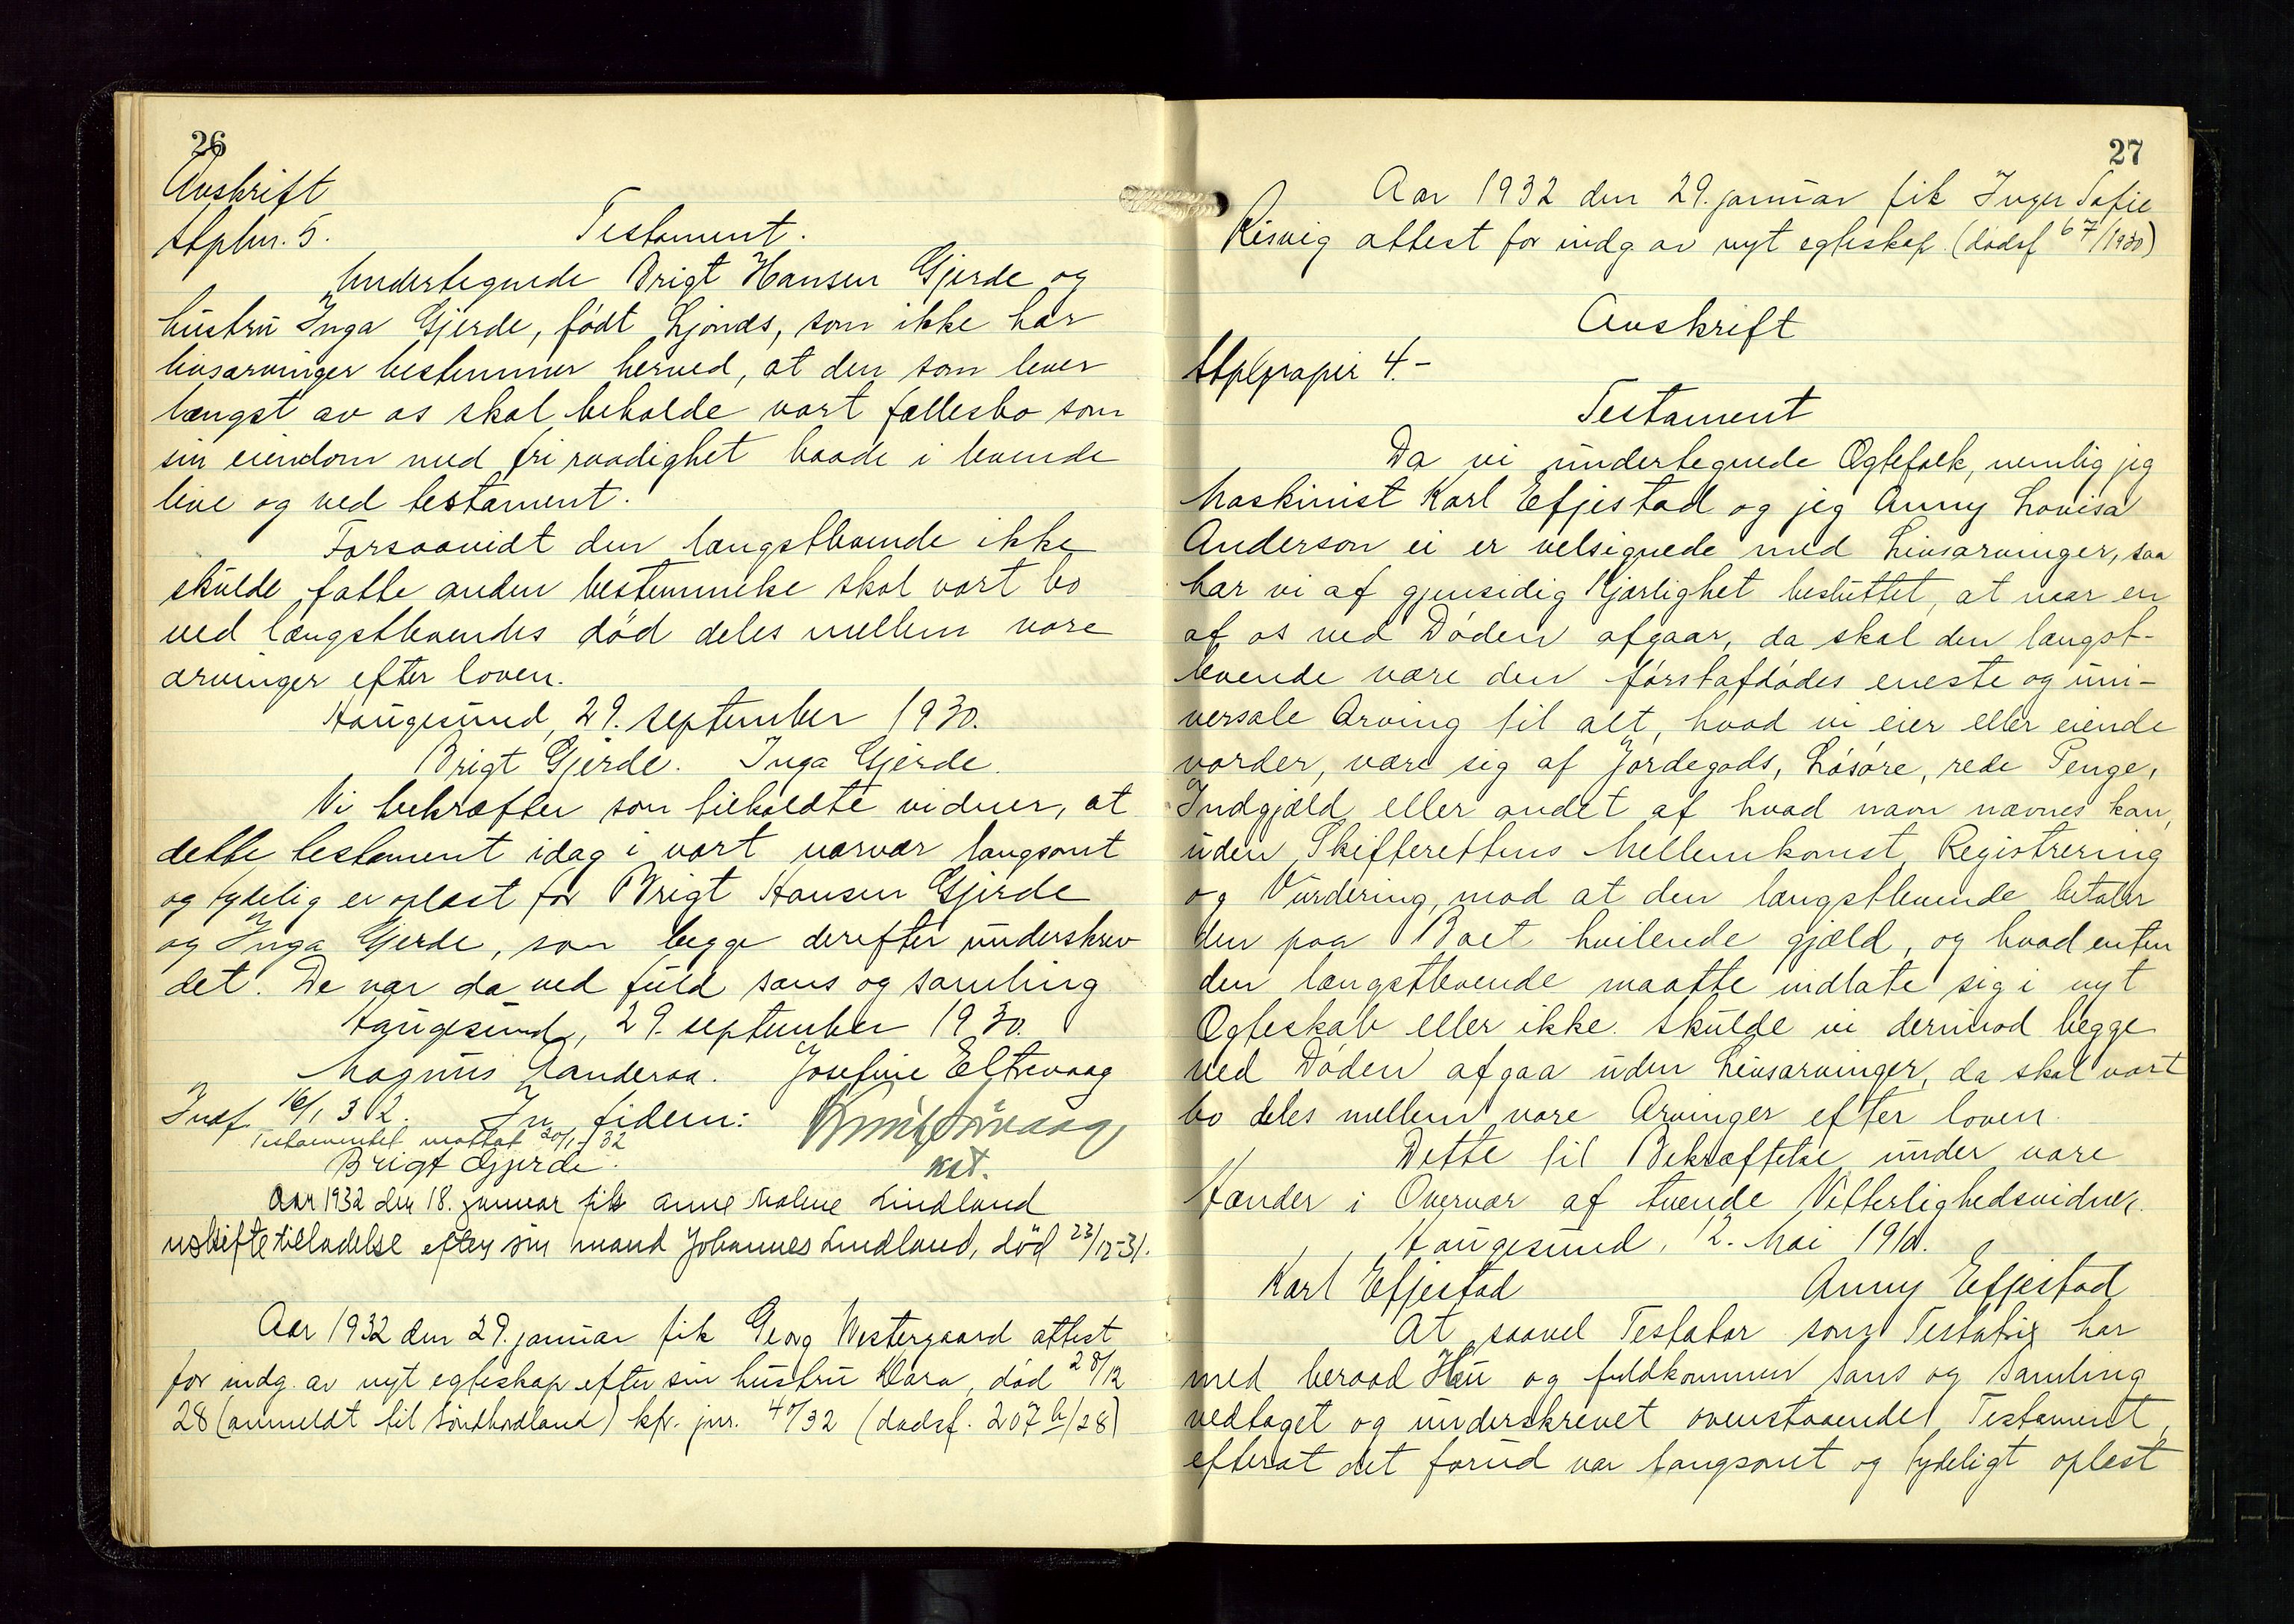 26
Avskrift
Stplm. 5.
Testament.
Undertegnede Brigt Hansen Gjerde og
hustru Inga Gjerde, født Ljonds, som ikke har
livsarvinger bestemmer herved, at den som lever
længst av os skal beholde vort fællesbo som
sin eiendom med fri raadighet baade i levende
live og ved testament.
Forsaavidt den længstlevende ikke
skulde fatte anden bestemmelse skal vort bo
ved længstlevendes død deles mellem vore
arvinger efter loven.
Haugesund, 29. september 1930.
Brigt Gjerde. Inga Gjerde.
Vi bekræfter som tilkaldte vidner, at
dette testament idag i vort nærvær langsomt
og tydelig er oplæst for Brigt Hansen Gjerde
og Inga Gjerde, som begge derefter underskrev
det. De var da ved fuld sans og samling
Haugesund, 29. september 1930.
Magnus Vanderaa. Josefine Eltrevaag
Indf. 16/1 32. In fidem:
Testamentet mottat 20/1-32
Brigt Gjerde.
Aar 1932 den 18. januar fik Anne Malene Lindland
uskiftetilladelse efter sin mand Johannes Lindland, död 23/12-31.
Aar 1932 den 29. januar fik Georg Westergaard attest
for indg. av nyt egteskap efter sin hustru Klara, død 28/12
28 (anmeldt til Söndhordland) kfr. jnr. 40/32 (dødsf. 207 b/28)
27
Aar 1932 den 29. januar fik Inger Sofie
Risvig attest for indg av nyt egteskap (dødsf 67/1930)
Avskrift
Stplpapir 4.-
Testament
Da vi undertegnede Ægtefolk, nemlig jeg
Maskinist Karl Efjestad og jeg Anny Lovisa
Anderson ei er velsignede med Livsarvinger, saa
har vi af gjensidig Kjærlighet besluttet, at naar en
af os ved Døden afgaar, da skal den længst-
levende være den førstafdødes eneste og uni-
versale Arving til alt, hvad vi eier eller eiende
vorder, være sig af Jordegods, Løsøre, rede Penge,
Indgjæld eller andet af hvad navn nævnes kan,
uden Skifterettens Mellemkomst, Registrering
og Vurdering, mod at den længstlevende betaler
den paa Boet hvilende gjæld, og hvad enten
den længstlevende maatte indlate sig i nyt
Ægteskab eller ikke. Skulde vi derimod begge
ved Døden afgaa uden Livsarvinger, da skal vort
bo deles mellem vore Arvinger efter loven.
Dette til Bekræftelse under vore
Hænder i Overvær af tvende Vitterlighedsvidner.
Haugesund, 12. Mai 1910.
Karl Efjestad Anny Efjestad
At saavel Testator som Testatrix har
med beraad Hu og fuldkommen Sans og Samling
vedtaget og underskrevet ovenstaaende Testament,
efterat det forud var langsomt og tydeligt oplæst